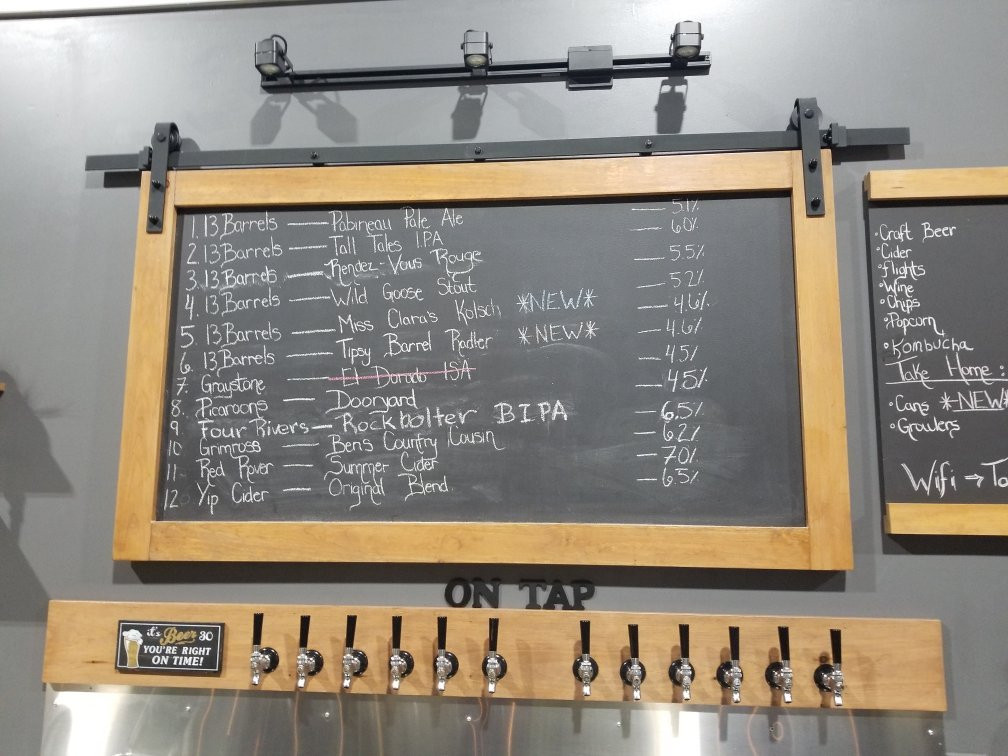 1. 13 Barrels — Pabineau Pale Ale — 5.1%
2. 13 Barrels — Tall Tales IPA — 6.0%
3. 13 Barrels — Rendez-Vous Rouge — 5.5%
4. 13 Barrels — Wild Goose Stout — 5.2%
5. 13 Barrels — Miss Clara's Kolsch *NEW* — 4.6%
6. 13 Barrels — Tipsy Barrel Radler *NEW* — 4.6%
7. Graystone — El Dorado ISA — 4.5%
8. Picaroons — Dooryard — 4.5%
9. Four Rivers — Rockbolter BIPA — 6.5%
10 Grimross — Bens Country Cousin — 6.2%
11. Red Rover — Summer Cider — 7.0%
12. Yip Cider — Original Blend — 6.5%
•Craft Beer
•Cider
•flights
•Wine
•Chips
•Popcorn
•Kombucha
Take Home:
•Cans *NEW*
•Growlers
Wifi →
ON TAP
it's Beer 30
YOU'RE RIGHT
ON TIME!